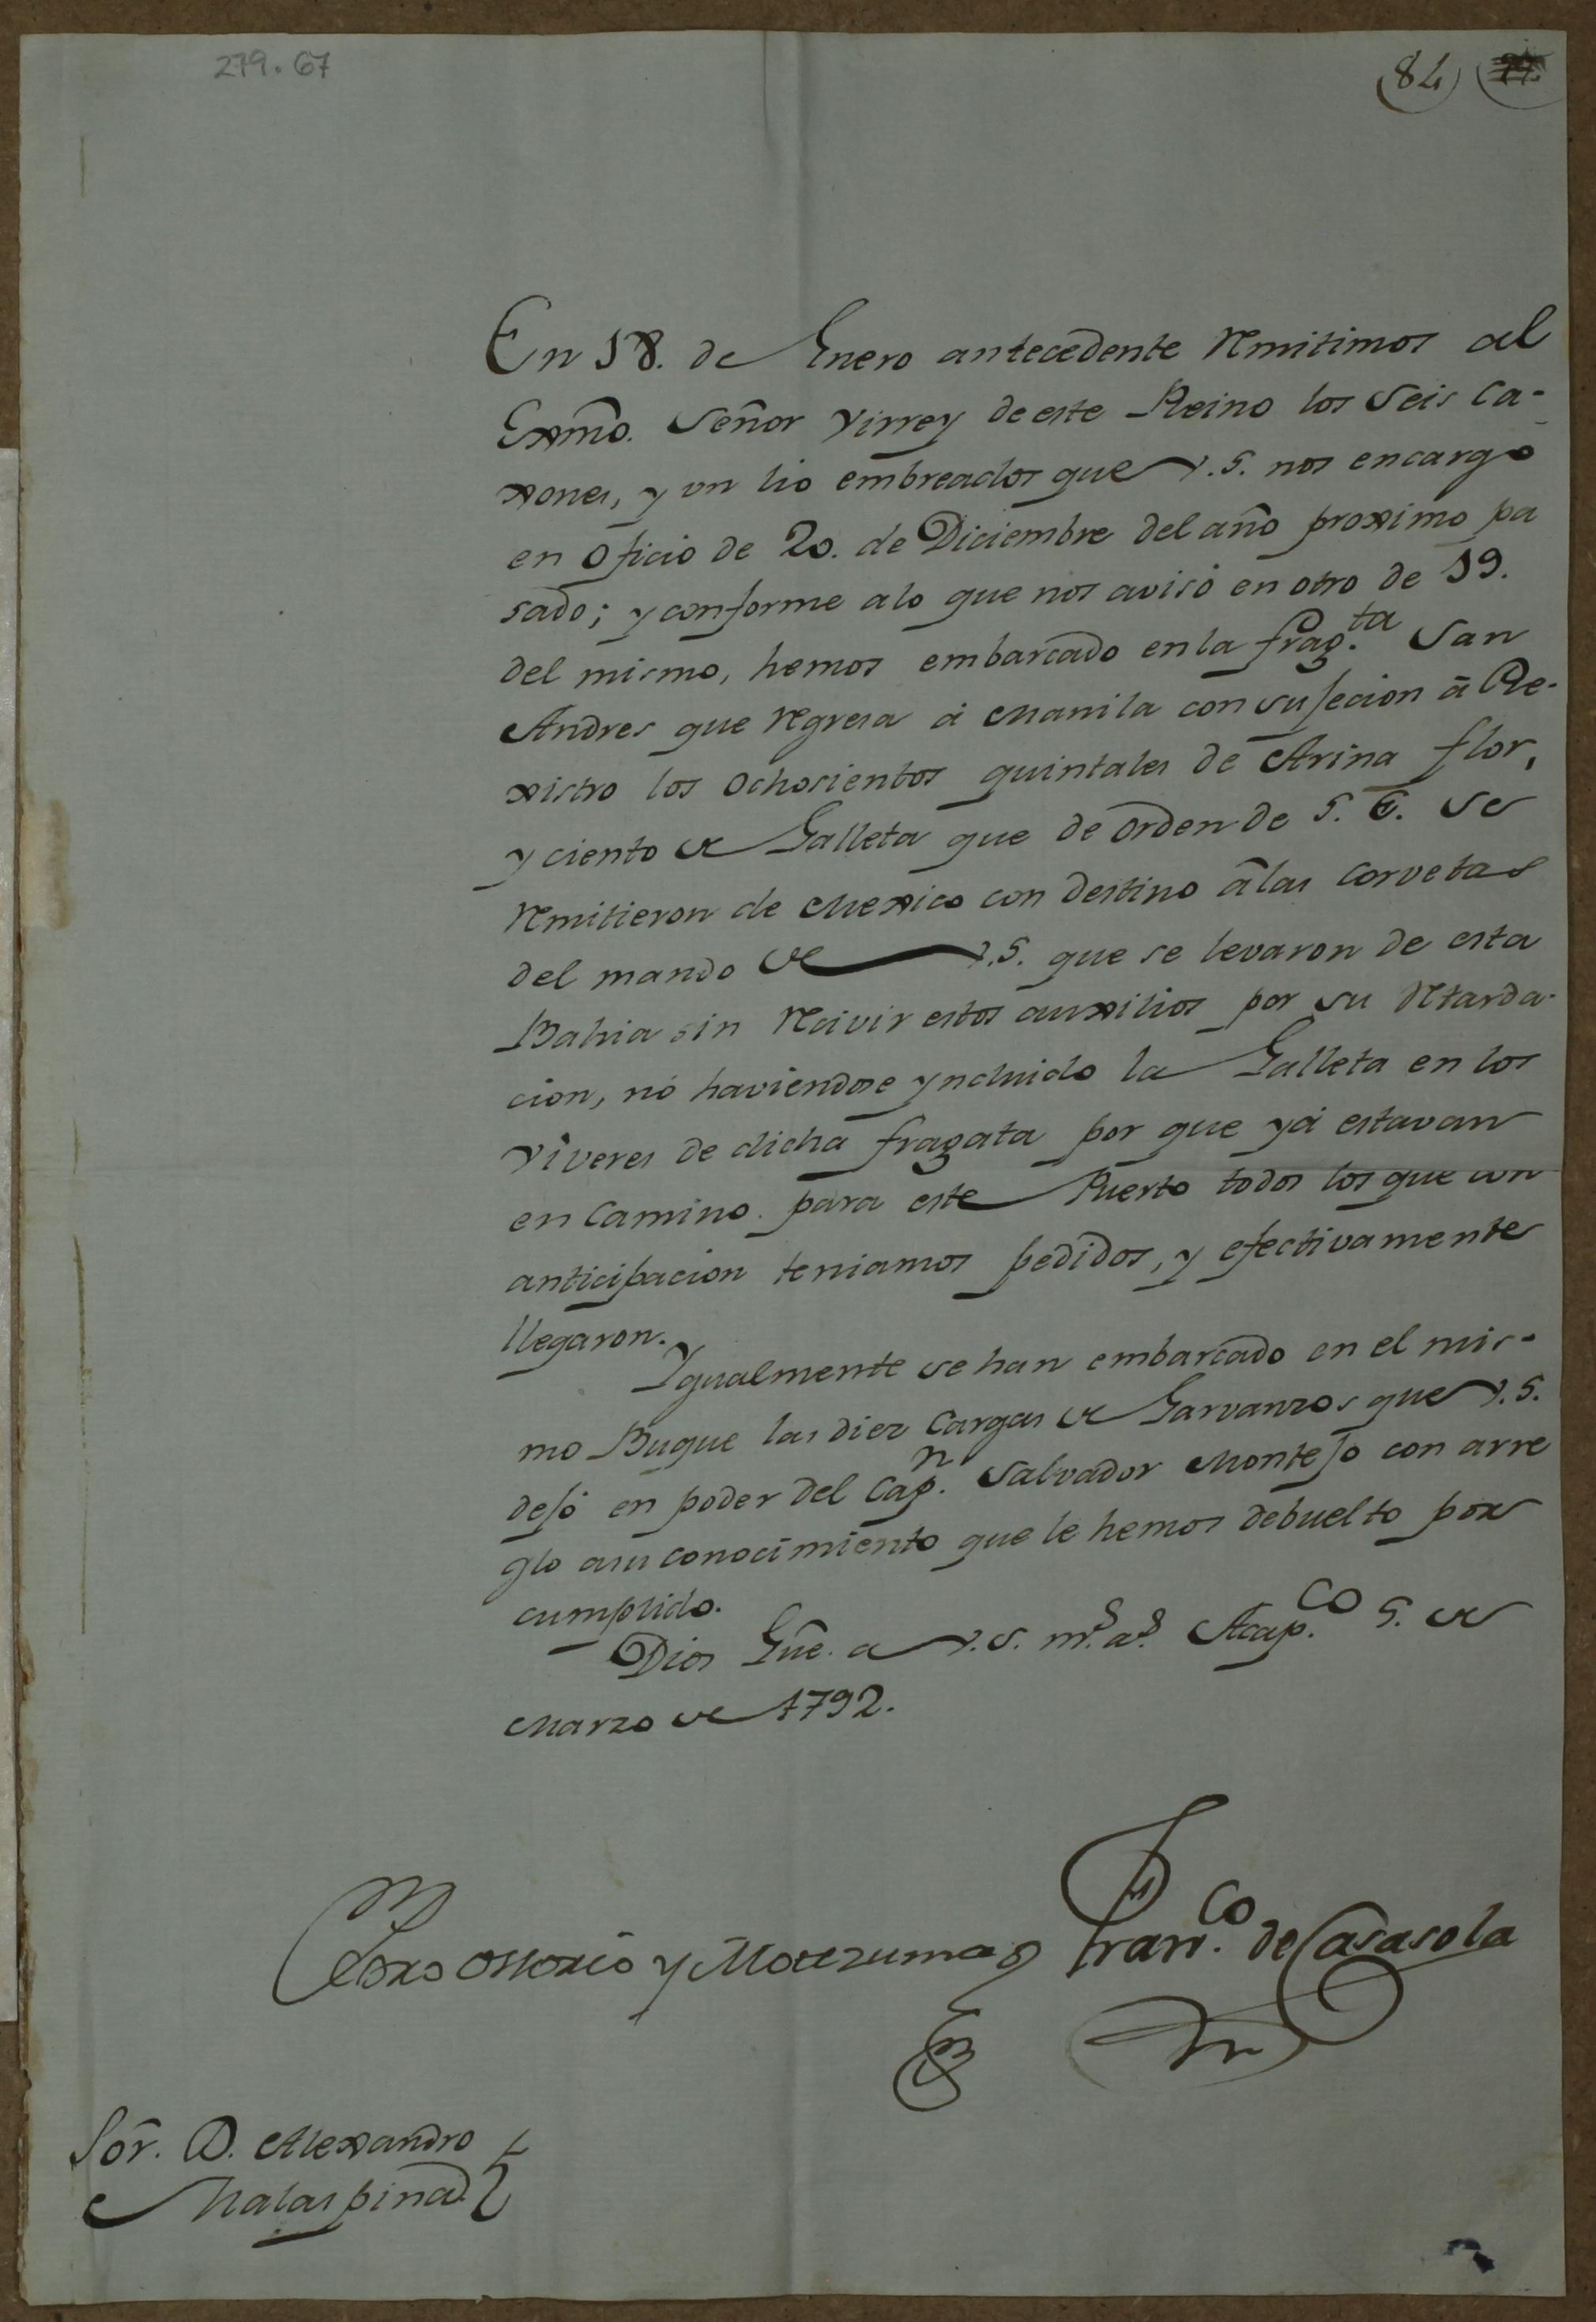 279.67
(84) (77.)
En 18. de Enero antecedente Remitimos al
Exmõ. Señor Virrey de este Reino los Seis Ca-
xones, y un lio embreados que V.S. nos encargó
en Oficio de 20. de Diciembre del año proximo pa
sado; y conforme a lo que nos avisó en otro de 19.
del mismo, hemos embarcado en la frag.ta San
Andres que Regresa á Manila con sujecion á Re-
xistro los ochosientos quintales de Arina flor,
y ciento de Galleta que de orden de S. E. se
Remitieron de Mexico con destino á las Corvetas
del mando de V.S. que se levaron de esta
Bahia sin Recivir estos auxilios por su Retarda-
cion, nó haviendose yncluido la Galleta en los
viveres de dicha fragata por que yá estavan
en Camino para este Puerto todos los que con
anticipacion teniamos pedidos, y efectivamente
llegaron.
Ygualmente se han embarcado en el mis-
mo Buque las diez Cargas de Garvanzos que V.S.
dejó en poder del Cap.n Salvador Montejo con arre
glo a su conocimiento que le hemos debuelto por
cumplido.
Dios Gũe. a V.S. m.s a.s Acap.co 5. de
Marzo de 1792.
Pedro Ossorio y Motezuma Fran.co de Casasola
Sõr. D. Alexandro
Malaspina